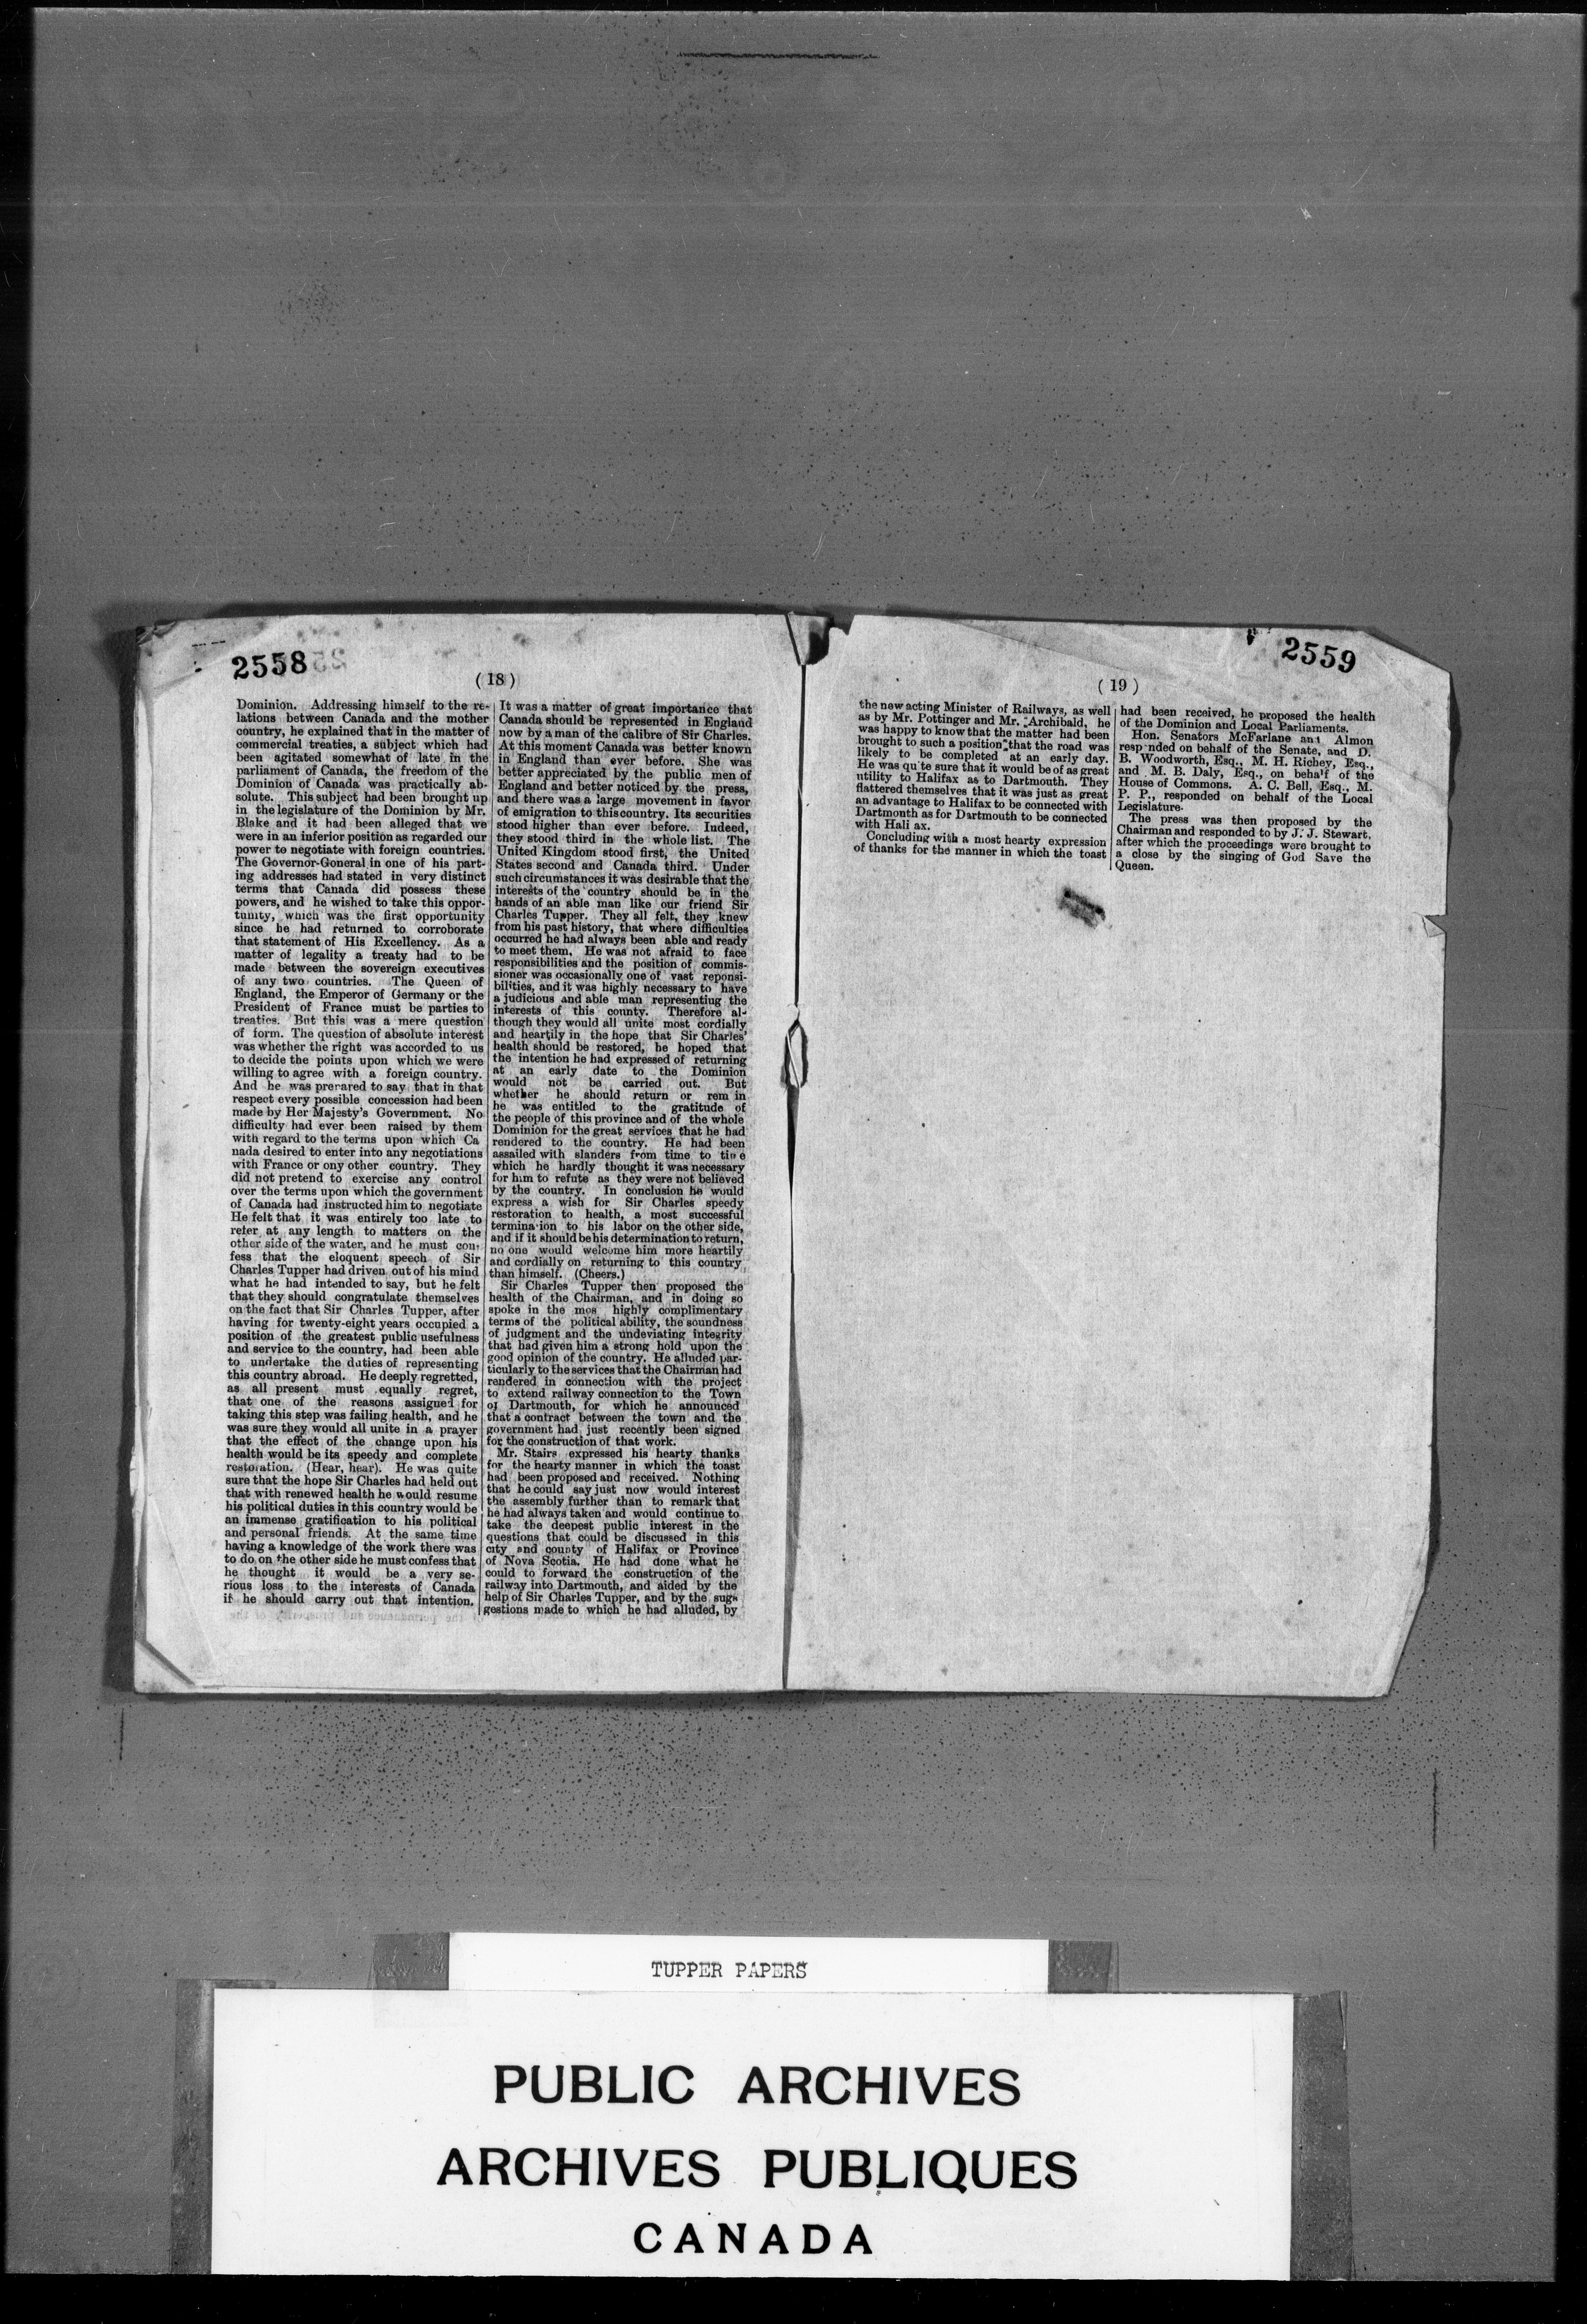 2558
(18)
Dominion. Addressing himself to the re-
lations between Canada and the mother
country, he explained that in the matter of
commercial treaties, a subject which had
been agitated somewhat of late in the
parliament of Canada, the freedom of the
Dominion of Canada was practically ab-
solute. This subject had been brought up
in the legislature of the Dominion by Mr.
Blake and it had been alleged that we
were in an inferior position as regarded our
power to negotiate with foreign countries.
The Governor-General in one of his part-
ing addresses had stated in very distinct
terms that Canada did possess these
powers, and he wished to take this oppor-
tunity, which was the first opportunity
since he had returned to corroborate
that statement of His Excellency. As a
matter of legality a treaty had to be
made between the sovereign executives
of any two countries. The Queen of
England, the Emperor of Germany or the
President of France must be parties to
treaties. But this was a mere question
of form. The question of absolute interest
was whether the right was accorded to us
to decide the points upon which we were
willing to agree with a foreign country.
And he was prerared to say that in that
respect every possible concession had been
made by Her Majesty's Government. No
difficulty had ever been raised by them
with regard to the terms upon which Ca
nada desired to enter into any negotiations
with France or ony other country. They
did not pretend to exercise any control
over the terms upon which the government
of Canada had instructed him to negotiate
He felt that it was entirely too late to
refer at any length to matters on the
other side of the water, and he must con-
fess that the eloquent speech of Sir
Charles Tupper had driven out of his mind
what he had intended to say, but he felt
that they should congratulate themselves
on the fact that Sir Charles Tupper, after
having for twenty-eight years occupied a
position of the greatest public usefulness
and service to the country, had been able
to undertake the duties of representing
this country abroad. He deeply regretted,
as all present must equally regret,
that one of the reasons assigned for
taking this step was failing health, and he
was sure they would all unite in a prayer
that the effect of the change upon his
health would be its speedy and complete
restoration. (Hear, hear). He was quite
sure that the hope Sir Charles had held out
that with renewed health he would resume
his political duties in this country would be
an immense gratification to his political
and personal friends. At the same time
having a knowledge of the work there was
to do on the other side he must confess that
he thought it would be a very se-
rious loss to the interests of Canada
if he should carry out that intention.
It was a matter of great importance that
Canada should be represented in England
now by a man of the calibre of Sir Charles.
At this moment Canada was better known
in England than ever before. She was
better appreciated by the public men of
England and better noticed by the press,
and there was a large movement in favor
of emigration to this country. Its securities
stood higher than ever before. Indeed,
they stood third in the whole list. The
United Kingdom stood first, the United
States second and Canada third. Under
such circumstances it was desirable that the
interests of the country should be in the
hands of an able man like our friend Sir
Charles Tupper. They all felt, they knew
from his past history, that where difficulties
occurred he had always been able and ready
to meet them. He was not afraid to face
responsibilities and the position of commis-
sioner was occasionally one of vast reponsi-
bilities, and it was highly necessary to have
a judicious and able man representing the
interests of this county. Therefore al-
though they would all unite most cordially
and heartily in the hope that Sir Charles'
health should be restored, he hoped that
the intention he had expressed of returning
at an early date to the Dominion
would not be carried out. But
whether he should return or rem in
he was entitled to the gratitude of
the people of this province and of the whole
Dominion for the great services that he had
rendered to the country. He had been
assailed with slanders from time to time
which he hardly thought it was necessary
for him to refute as they were not believed
by the country. In conclusion he would
express a wish for Sir Charles speedy
restoration to health, a most successful
termina ion to his labor on the other side,
and if it should be his determination to return,
no one would welcome him more heartily
and cordially on returning to this country
than himself. (Cheers.)
Sir Charles Tupper then proposed the
health of the Chairman, and in doing so
spoke in the mos highly complimentary
terms of the political ability, the soundness
of judgment and the undeviating integrity
that had given him a strong hold upon the
good opinion of the country. He alluded par-
ticularly to the services that the Chairman had
rendered in connection with the project
to extend railway connection to the Town
of Dartmouth, for which he announced
that a contract between the town and the
government had just recently been signed
for the construction of that work.
Mr. Stairs expressed his hearty thanks
for the hearty manner in which the toast
had been proposed and received. Nothing
that he could say just now would interest
the assembly further than to remark that
he had always taken and would continue to
take the deepest public interest in the
questions that could be discussed in this
city and county of Halifax or Province
of Nova Scotia. He had done what he
could to forward the construction of the
railway into Dartmouth, and aided by the
help of Sir Charles Tupper, and by the sug-
gestions made to which he had alluded, by
2559
(19)
the new acting Minister of Railways, as well
as by Mr. Pottinger and Mr. Archibald, he
was happy to know that the matter had been
brought to such a position that the road was
likely to be completed at an early day.
He was qu te sure that it would be of as great
utility to Halifax as to Dartmouth. They
flattered themselves that it was just as great
an advantage to Halifax to be connected with
Dartmonth as for Dartmouth to be connected
with Hali ax.
Concluding with a most hearty expression
of thanks for the manner in which the toast
had been received, he proposed the health
of the Dominion and Local Parliaments.
Hon. Senators McFarlane and Almon
resp nded on behalf of the Senate, and D.
B. Woodworth, Esq., M. H. Richey, Esq.,
and M. B. Daly, Esq., on behalf of the
House of Commons. A. C. Bell, Esq., M.
P. P., responded on behalf of the Local
Legislature.
The press was then proposed by the
Chairman and responded to by J. J. Stewart,
after which the proceedings were brought to
a close by the singing of God Save the
Queen.
TUPPER PAPERS
PUBLIC ARCHIVES
ARCHIVES PUBLIQUES
CANADA